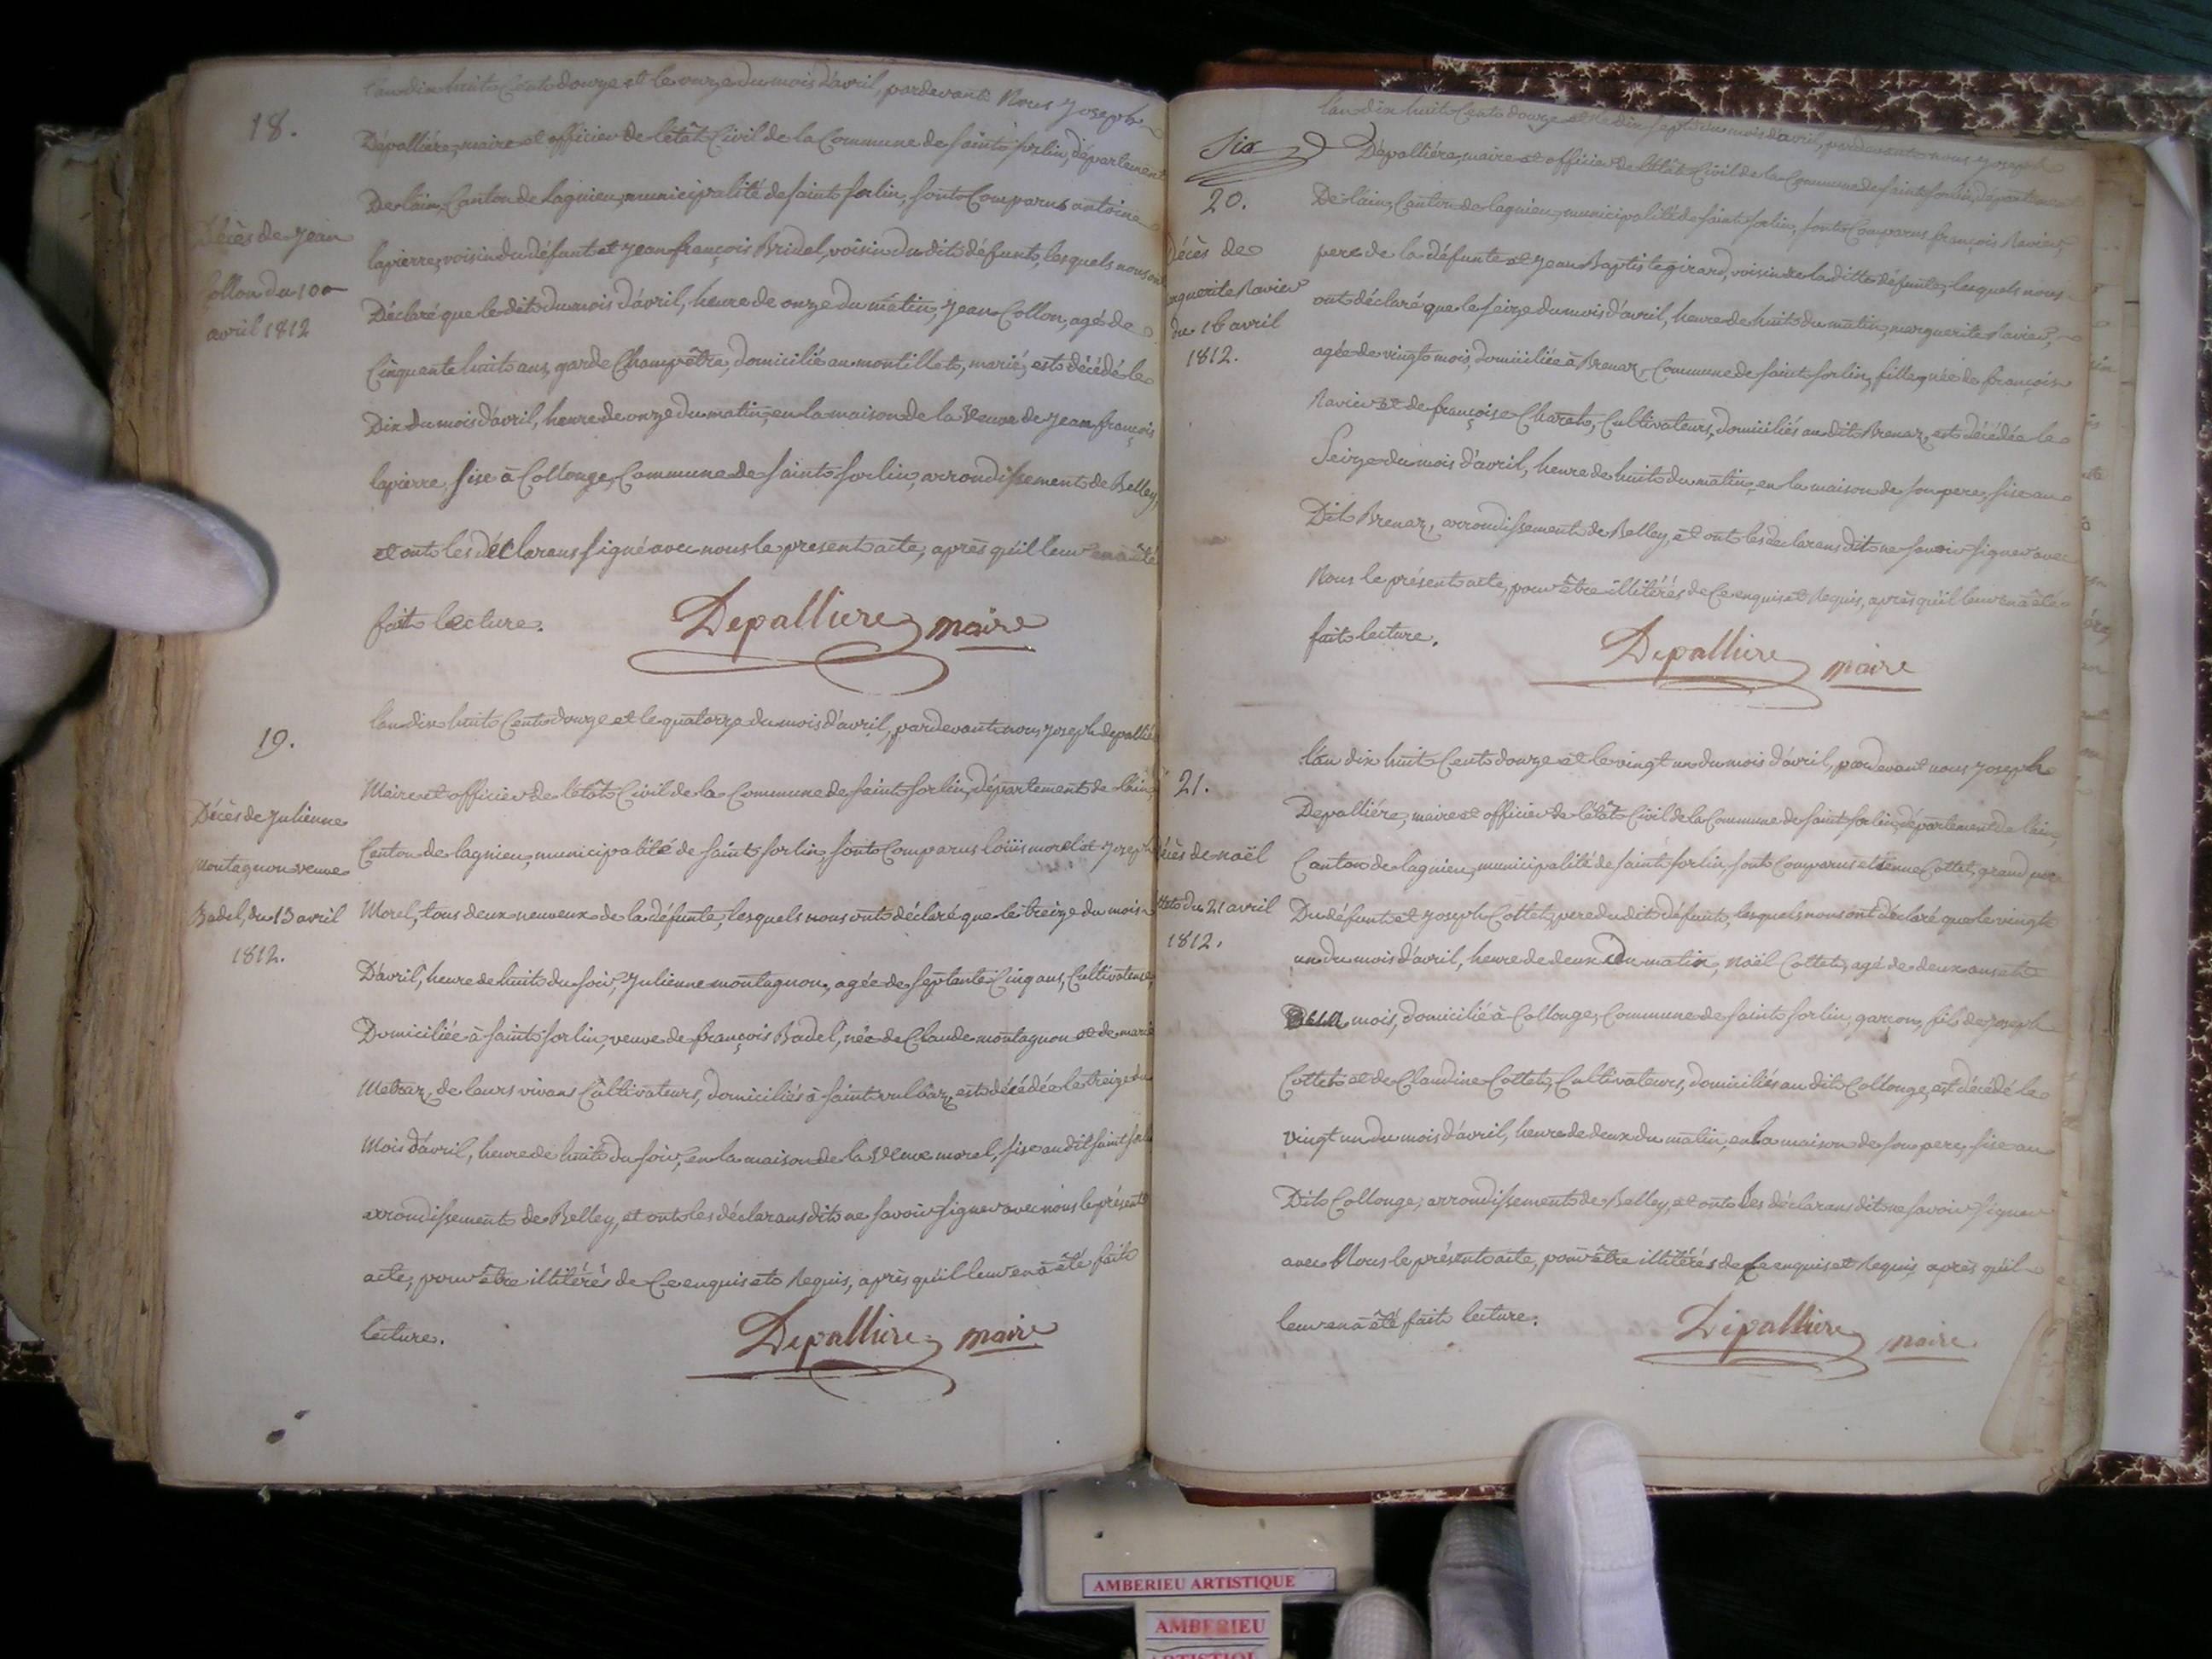 18.
Décès de Jean
Collon du 10
avril 1812
l'an dix huit Cent douze et le onze du mois d'avril, pardevant Nous Joseph
Dépalliére, maire et officier de l'etât Civil de la Commune de saint sorlin, département
De l'ain, Canton de lagnieu, municipalité de saint sorlin, sont Comparus antoine
lapierre, voisin du défunt et Jean françois Bridel, voisin du dit défunt, lesquels nous ont
Déclaré que le dit du mois d'avril, heure de onze du matin, Jean Collon, agé de
Cinquante huit ans, garde Champêtre, domicilié au montillet, marié, est décédé le
Dix du mois d'avril, heure de onze du matin, en la maison de la Veuve de Jean françois
lapierre, sise à Collonge, Commune de saint sorlin, arrondissement de Belley,
et ont les déclarans signé avec nous le present acte, après qu'il leur en a été
fait lecture.
Depalliere maire
19.
Décès de Julienne
Montagnon veuve
Badel, du 13 avril
1812.
l'an dix huit Cent douze et le quatorze du mois d'avril, pardevant nous Joseph depallié
Maire et officier de l'etât Civil de la Commune de saint sorlin, département de l'ain,
Canton de lagnieu, municipalité de saint sorlin, sont Comparus loüis morel et Joseph
Morel, tous deux neuveux de la défunte, lesquels nous ont déclaré que le treize du mois
D'avril, heure de huit du soir, Julienne montagnon, agée de septante Cinq ans, Cultivateuse,
Domiciliée à saint sorlin, veuve de françois Badel, née de Claude montagnon et de marie
de leurs vivans Cultivateurs, domiciliés à saint vulbaz, est décédée le treize du
Mois d'avril, heure de huit du soir, en la maison de la Veuve morel, sise au dit saint sorlin
arrondissement de Belley, et ont les déclarans dit ne savoir signer avec nous le présent
acte, pour être illitérés de Ce enquis et Requis, après qu'il leur en à été fait
lecture.
Depalliere maire
Six
20.
Décès de
Marguerite Ravier
du 16 avril
1812.
l'an dix huit Cent douze et le dix sept du mois d'avril, pardevant nous Joseph
Dépalliére, maire et officier de l'etât Civil de la Commune de saint sorlin, département
De l'ain, Canton de lagnieu, municipalité de saint sorlin, sont Comparus françois Ravier,
pere de la défunte et Jean Baptiste girard, voisin de la ditte défunte, lesquels nous
ont déclaré que le seize du mois d'avril, heure de huit du matin, marguerite Ravier,
agée de vingt mois, domiciliée à Brenaz, Commune de saint sorlin, fille, née de françois
Ravier et de françoise Charet, Cultivateurs, domiciliés au dit Brenaz, est décédée le
Seize du mois d'avril, heure de huit du matin, en la maison de son pere, sise au
Dit Brenaz, arrondissement de Belley, et ont les déclarans dit ne savoir signer avec
Nous le présent acte, pour être illitérés de Ce enquis et Requis, après qu'il leur en à été
fait lecture.
Depalliere maire
21.
écès de noël
ttet du 21 avril
1812.
l'an dix huit Cent douze et le vingt un du mois d'avril, pardevant nous Joseph
Depalliére, maire et officier de l'etât Civil de la Commune de saint sorlin, département de l'ain,
Canton de lagnieu, municipalité de saint sorlin, sont Comparus etienne Cottet, grand pere
Du défunt et Joseph Cottet, pere du dit défunt, lesquels nous ont déclaré que le vingt
un du mois d'avril, heure de deux du matin, Noël Cottet, agé de deux ans et
mois, domicilié à Collonge, Commune de saint sorlin, garçon, fils de Joseph
Cottet et de Claudine Cottet, Cultivateurs, domiciliés au dit Collonge, est décédé le
vingt un du mois d'avril, heure de deux du matin, en la maison de son pere, sise au
Dit Collonge, arrondissement de Belley, et ont les déclarans dit ne savoir signer
avec Nous le présent acte, pour être illitérés de Ce enquis et Requis, après qu'il
leur en à été fait lecture.
Depalliere maire
AMBERIEU ARTISTIQUE
AMBERIEU
ARTISTIQUE